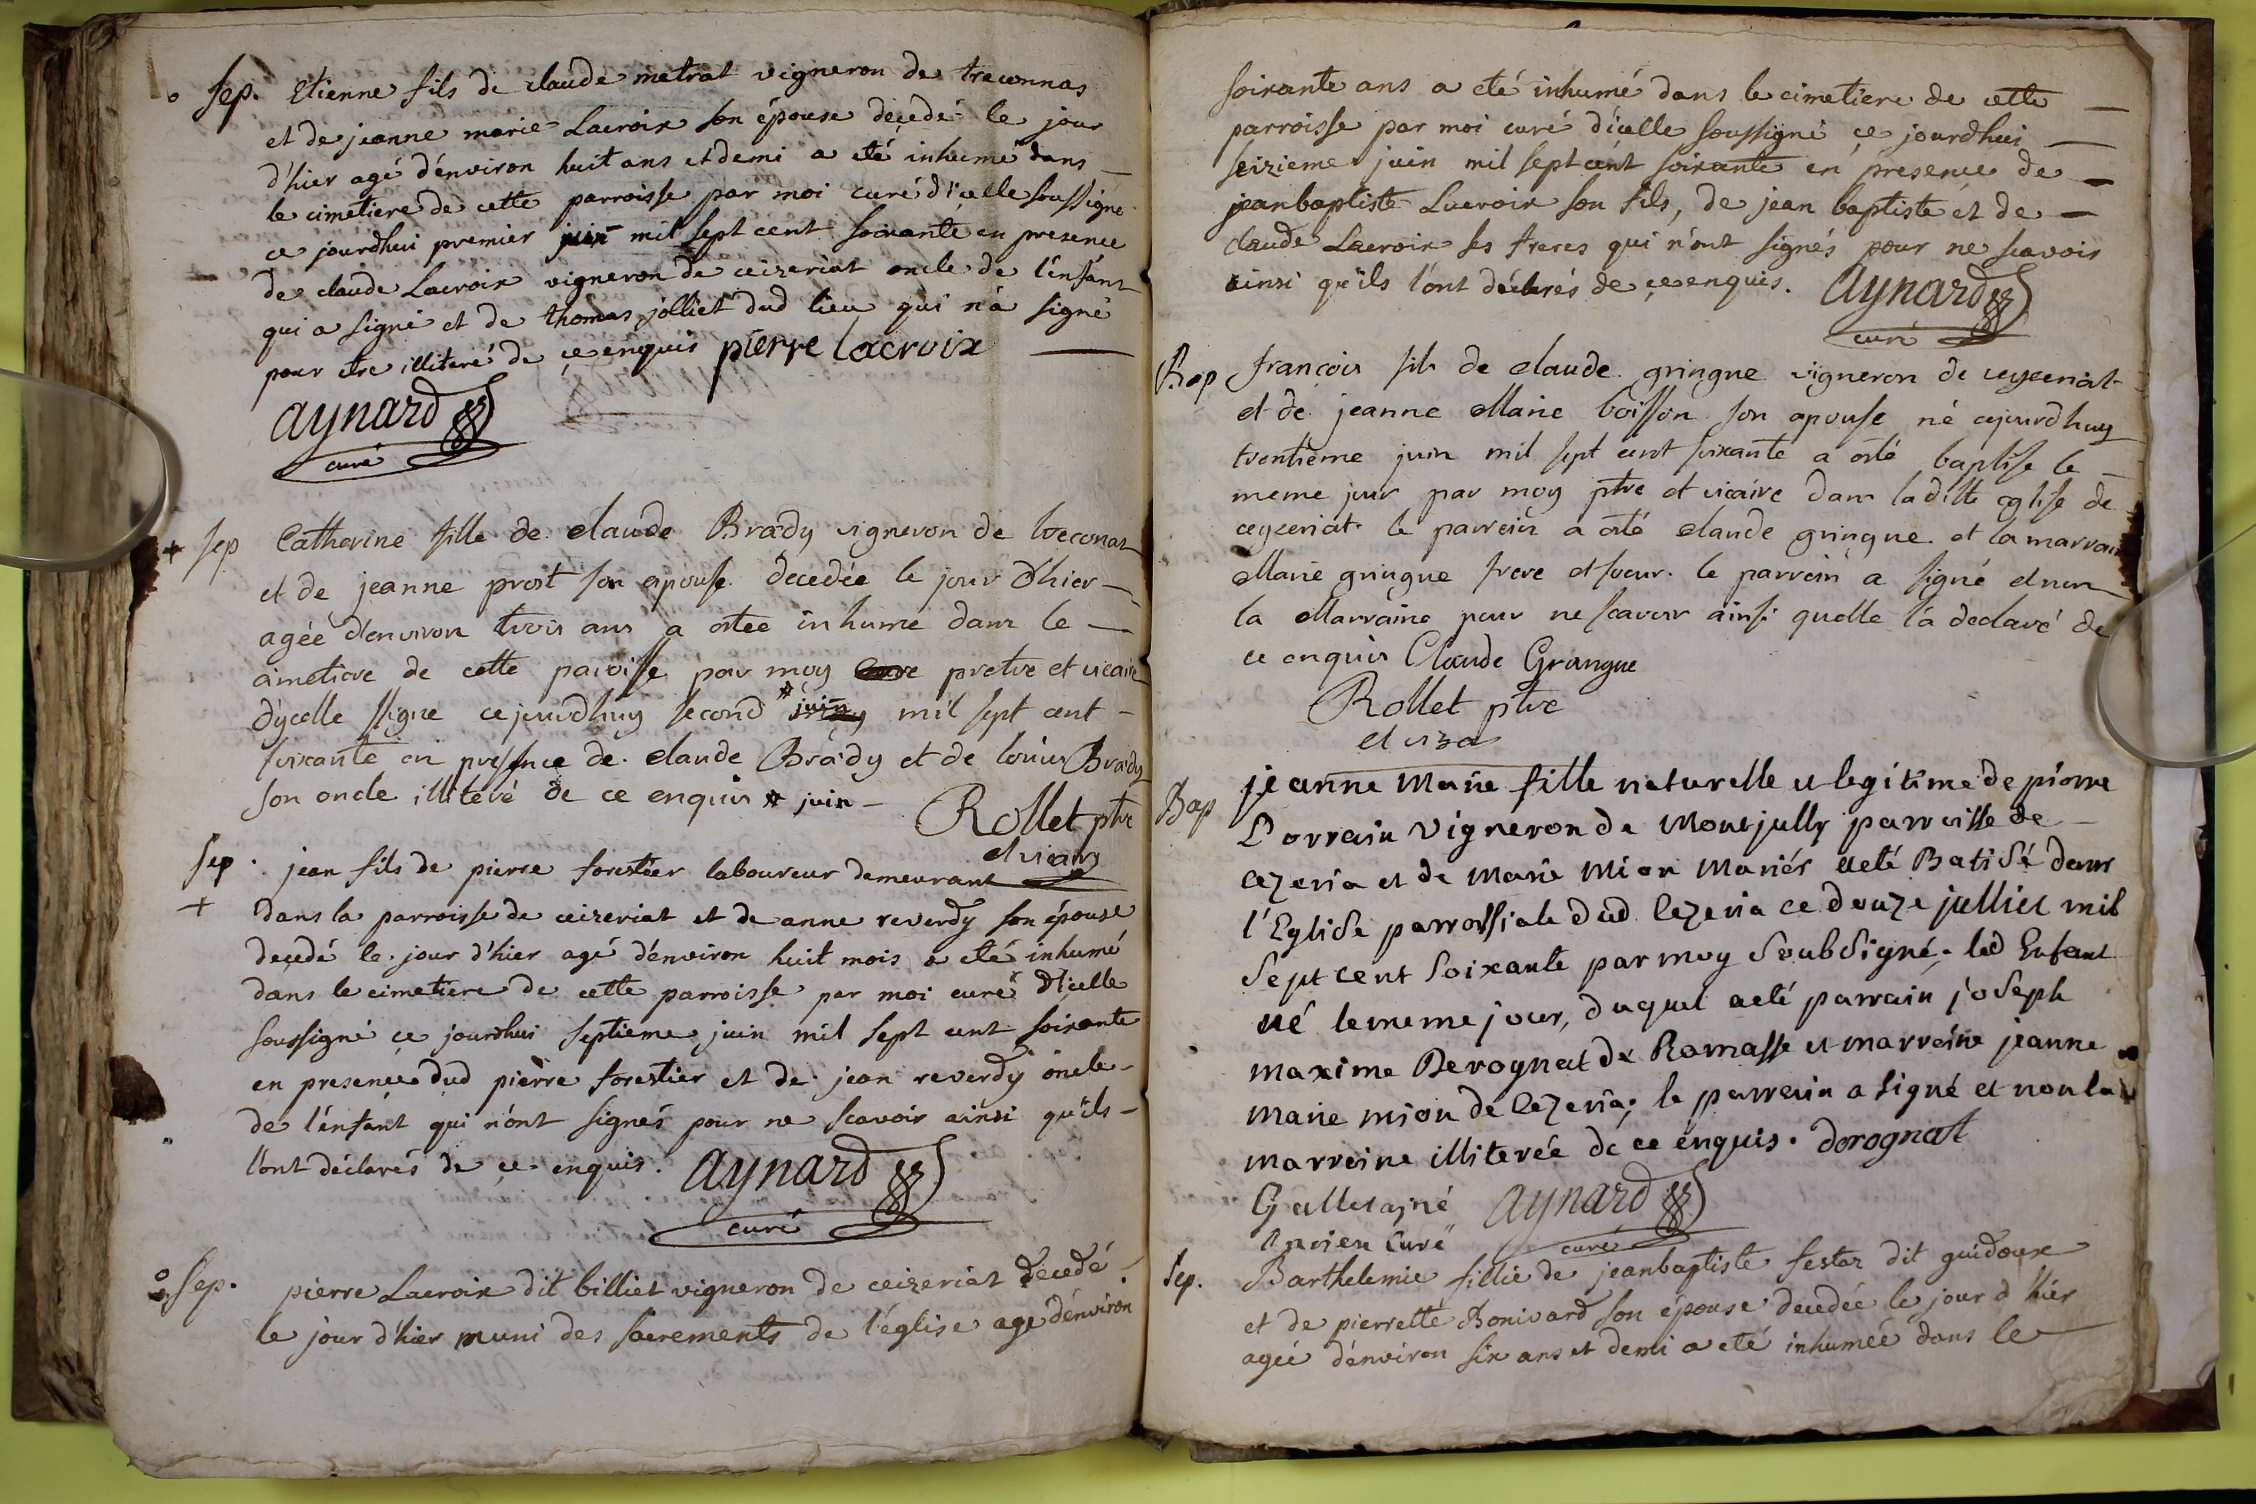 Sep. Etienne fils de claude metrat vigneron de treconnas
et de jeanne marie Lacroix son épouse decedé le jour
d'hier agé d'énviron huit ans et demi a eté inhumé dans
le cimetiere de cette parroisse par moi curé d'icelle soussigné
ce jourdhui premier juin mil sept cent soixante en presence
de claude Lacroix vigneron de ceizeriat oncle de l'énfant
qui a signé et de thomas jolliet dud lieu qui n'a signé
pour etre illiteré de ce enquis pierre lacroix
aynard
curé
+ sep Catherine fille de claude Brady vigneron de treconas
et de jeanne prost son epouse decedée le jour d'hier
agée d'environ trois ans a etee inhume dans le
cimetiere de cette paroisse par moy pretre et vicaire
d'ycelle ssigne cejourdhuy second * juin mil sept cent
soixante en presence de claude Brady et de louis Brady
son oncle illiteré de ce enquis * juin
Rollet ptre
et vicaire
Sep. jean fils de pierre forestier laboureur demeurant
+ dans la parroisse de ceizeriat et de anne reverdy son épouse
decedé le jour d'hier agé d'énviron huit mois a eté inhumé
dans le cimetiere de cette parroisse par moi curé d'icelle
soussigné ce jourdhui septieme juin mil sept cent soixante
en presence dud pierre forestier et de jean reverdy oncle
de l'énfant qui n'ont signés pour ne scavoir ainsi qu'ils
l'ont déclarés de ce enquis. aynard
curé
Sep. pierre Lacroix dit billiet vigneron de ceizeriat decedé
le jour d'hier muni des sacrements de l'église agé d'énviron
soixante ans a eté inhumé dans le cimetiere de cette
parroisse par moi curé d'icelle soussigné ce jourdhui
seizieme juin mil sept cent soixante en presence de
jeanbaptiste Lacroix son fils, de jean baptiste et de
claude Lacroix ses freres qui n'ont signés pour ne scavoir
ainsi qu'ils l'ont déclarés de ce enquis. aynard
curé
Bap françois fils de claude gringue vigneron de ceyzeriat
et de jeanne Marie boisson son epouse né cejourdhuy
trentieme juin mil sept cent soixante a eté baptise le
meme jour par moy ptre et vicaire dans laditte eglise de
ceyzeriat le parrein a eté claude gringue et la marraine
Marie gringue frere et soeur. le parrein a signé et non
la Marraine pour ne scavoir ainsi quelle l'a declaré de
ce enquis Claude Grangue
Rollet ptre
Bap jeanne Marie fille naturelle et legitime de pierre
Lorrain Vigneron de Montjully parroisse de
cezeria et de Marie Mion Mariés aeté Batisé dans
l'Eglise parroissiale dud Cezeria ce douze julliet mil
Sept cent Soixante par moy Soubsigné. led Enfant
né le meme jour, duquel aeté parrain joseph
maxime Derognat de Ramasse et marraine jeanne
marie mion de Cezeria; le parrain a signé et non la
marreine illiterée de ce enquis. derognat
Gallet ainé aynard
Ancien Curé curé
Sep. Barthelemie fillie de jeanbaptiste festaz dit guidoux
et de pierrette Bonivard son épouse decedée le jour d'hier
agée d'énviron six ans et demi a eté inhumée dans le